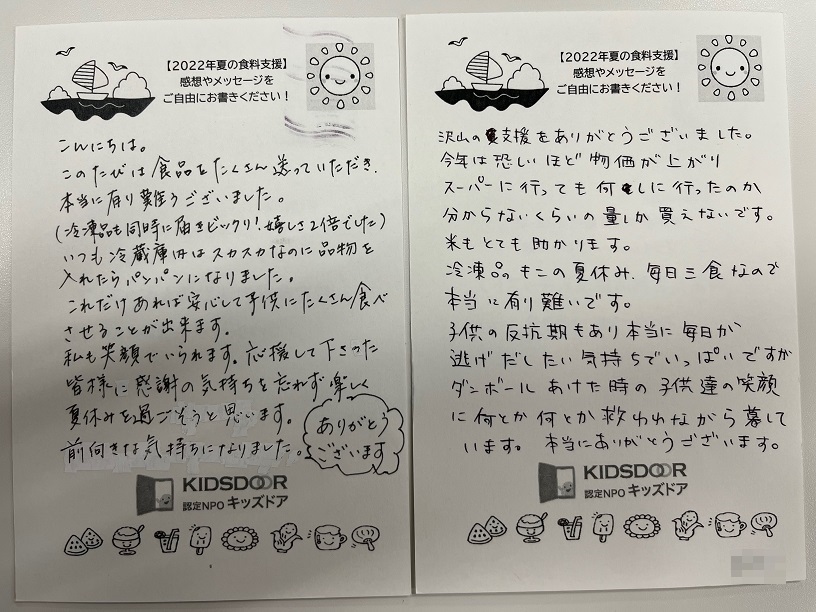 【2022年夏の食料支援】
感想やメッセージを
ご自由にお書きください！
こんにちは。
このたびは食品をたくさん送っていただき、
本当に有り難うございました。
(冷凍品も同時に届きビックリ！嬉しさ2倍でした)
いつも冷蔵庫はスカスカなのに品物を
入れたらパンパンになりました。
これだけあれば安心して子供にたくさん食べ
させることが出来ます。
私も笑顔でいられます。応援して下さった
皆様に感謝の気持ちを忘れず楽しく
夏休みを過ごそうと思います。
前向きな気持ちになりました。
ありがとう
ございます
KIDSDOOR
認定NPO キッズドア
【2022年夏の食料支援】
感想やメッセージを
ご自由にお書きください！
沢山の支援をありがとうございました。
今年は恐しいほど物価が上がり
スーパーに行っても何しに行ったのか
分からないくらいの量しか買えないです。
米もとても助かります。
冷凍品もこの夏休み、毎日三食なので
本当に有り難いです。
子供の反抗期もあり本当に毎日が
逃げだしたい気持ちでいっぱいですが
ダンボールあけた時の子供達の笑顔
に何とか何とか救われながら暮して
います。本当にありがとうございます。
KIDSDOOR
認定NPO キッズドア